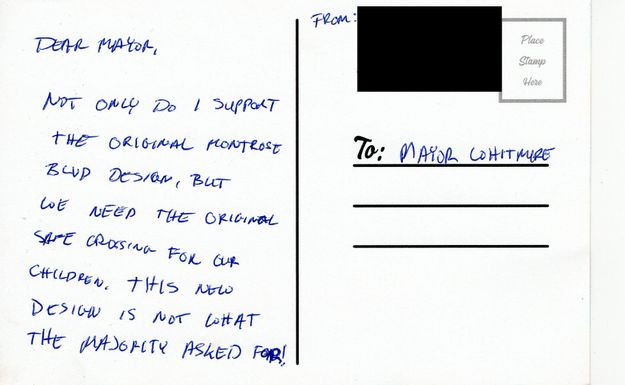 DEAR MAYOR,
NOT ONLY DO I SUPPORT
THE ORIGINAL MONTROSE
BLVD DESIGN, BUT
WE NEED THE ORIGINAL
SAFE CROSSING FOR OUR
CHILDREN. THIS NEW
DESIGN IS NOT WHAT
THE MAJORITY ASKED FOR!
FROM:
Place
Stamp
Here
To: MAYOR WHITMIRE